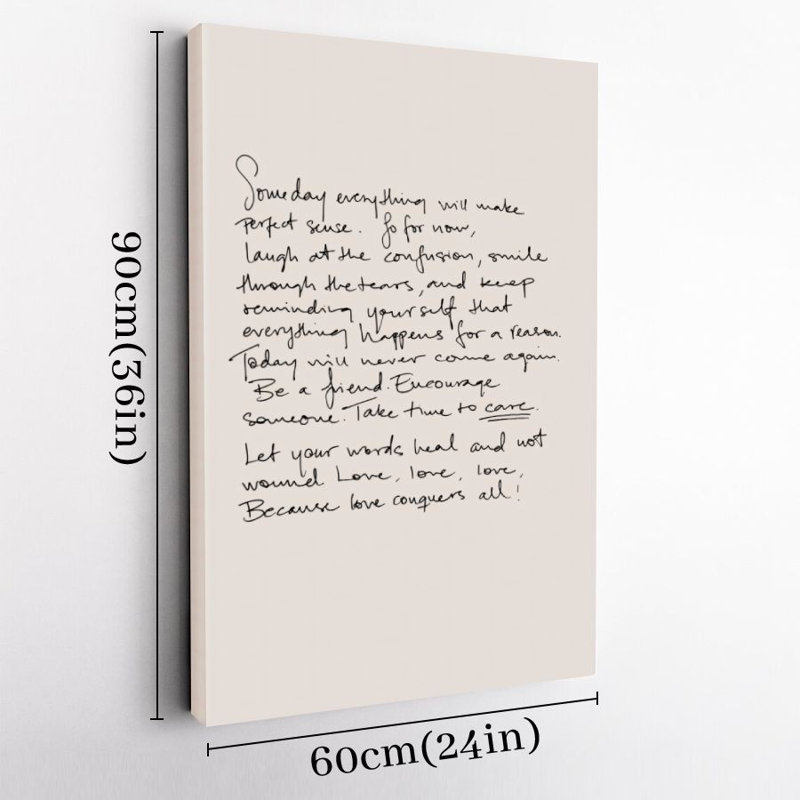 90cm(36in)
Someday everything will make
perfect sense. So for now,
laugh at the confusion, smile
through the tears, and keep
reminding yourself that
everything happens for a reason.
Today will never come again.
Be a friend. Encourage
someone. Take time to care.
Let your words heal and not
wound Love, love, love,
Because love conquers all!
60cm(24in)